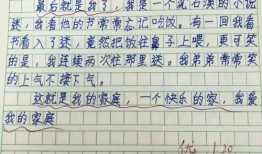 最后就是我了，我是一个沈石溪的小说
迷，我看他的书常常忘记吃饭。有一回我看
书看入了迷，竟然把饭往鼻子上喂，更可笑
的是，我连续两次往那里送。我弟弟常常笑
的上气不接下气。
这就是我的家庭，一个快乐的家，我爱
我的家庭
优 120